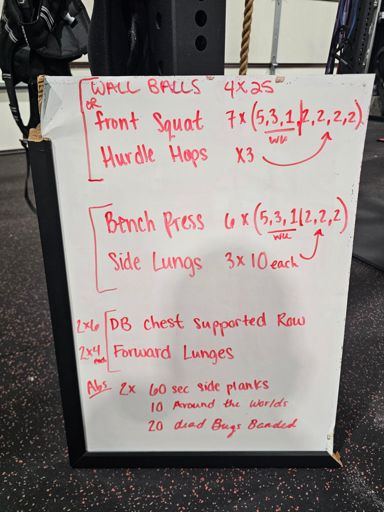 WALL BALLS 4x25
OR
front Squat 7x(5,3,1|2,2,2,2)
wu
Hurdle Hops x3
Bench Press 6x(5,3,1|2,2,2)
wu
Side Lungs 3x10 each
2x6 DB chest Supported Row
2x4 each Forward Lunges
Abs 2x 60 sec side planks
10 Around the Worlds
20 dead Bugs Banded